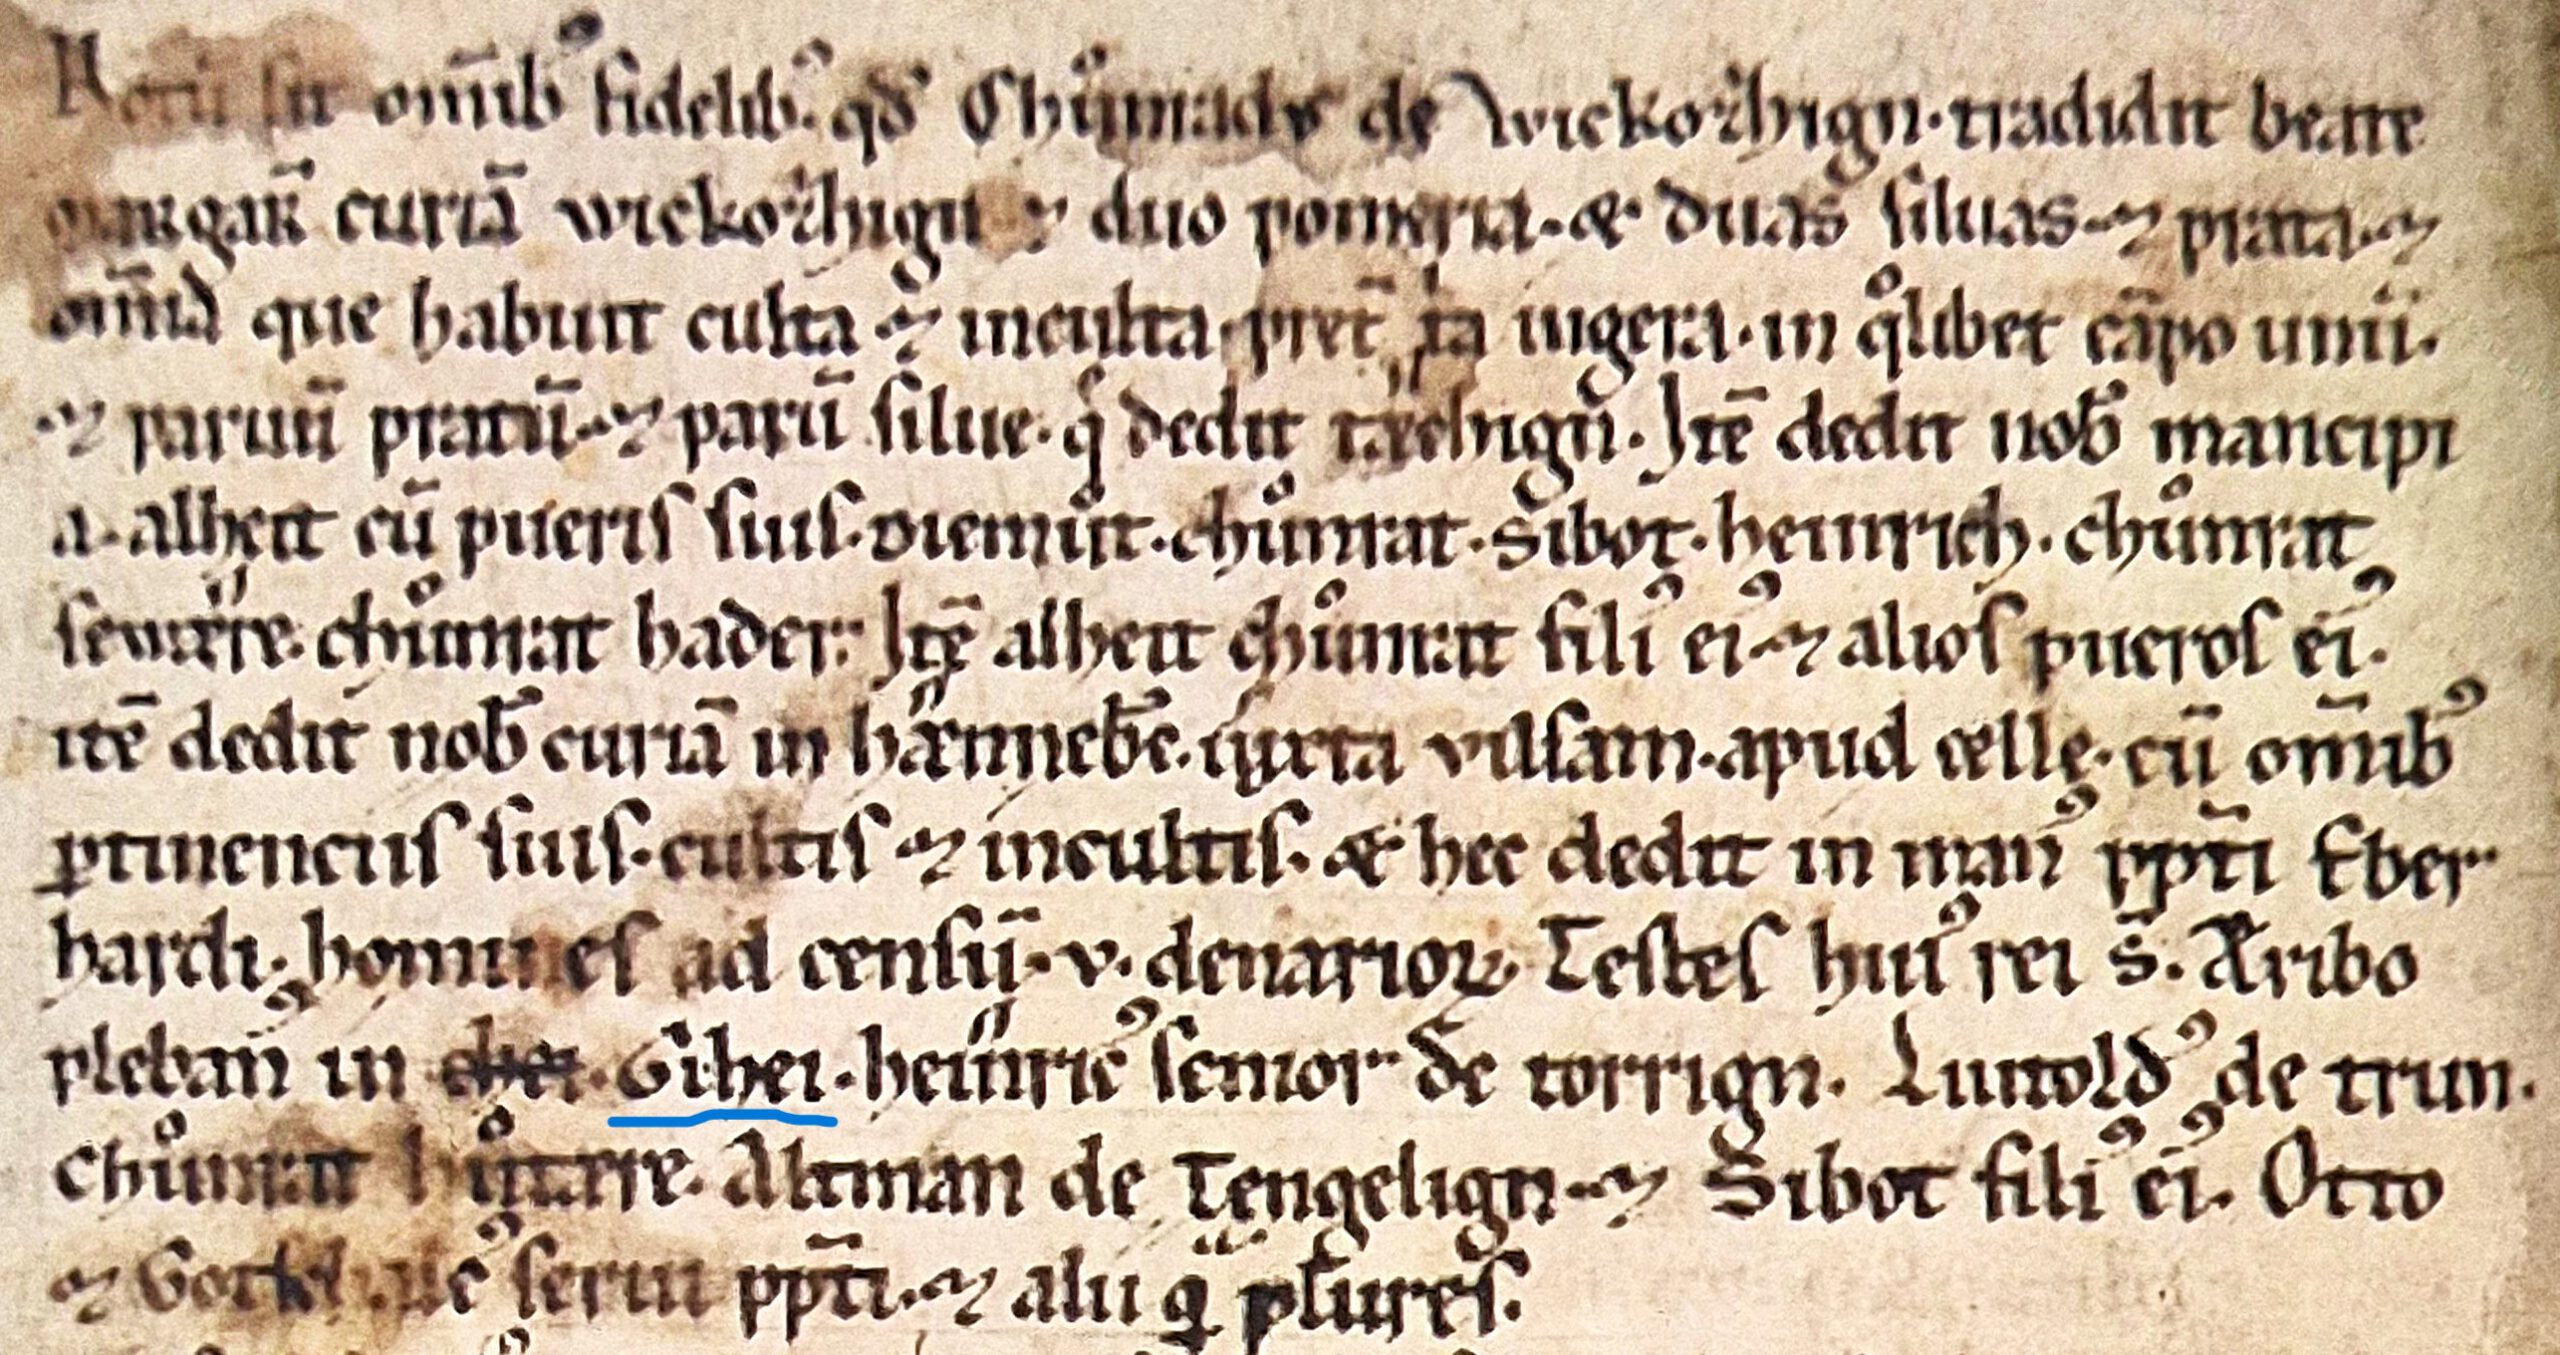 Notū sit om̄ib᾽ fidelib᾽. qd̄ Chůnradꝰ de wickorhign. tradidit beate
margar̄ curiā wickorhign ⁊ duo pomeria. & duas siluas. ⁊ prata. ⁊
om̄ia que habuit culta ⁊ inculta. pret̄ iugera. in qͦlibet cāpo unū.
⁊ paruū pratū. ⁊ parū silue. dedit Itē dedit nob̄ mancipi
a. alheit cū pueris suis. diemůt. chůnrat. Sibot. heinrich. chůnrat
chůnrat hader. Itē alheit chůnrat filiꝰ eiꝰ ⁊ alios pueros eiꝰ.
itē dedit nob̄ curiā in iuxta villam. apud celle. cū om̄ib᾽
ꝑtinenciis suis. cultis ⁊ incultis. & hec dedit in manꝰ pp̄ti Eber
hardi. homines ad censū. v. denarioꝝ Testes huiꝰ rei s̄. Aribo
pleban̄ in Gihei. heinricꝰ senior de torrign. Luitoldꝰ de trun.
Chůnrat Altman de Tengelign. ⁊ Sibot filiꝰ eiꝰ. Otto
⁊ serui pp̄ti. ⁊ alii qͣ plures.